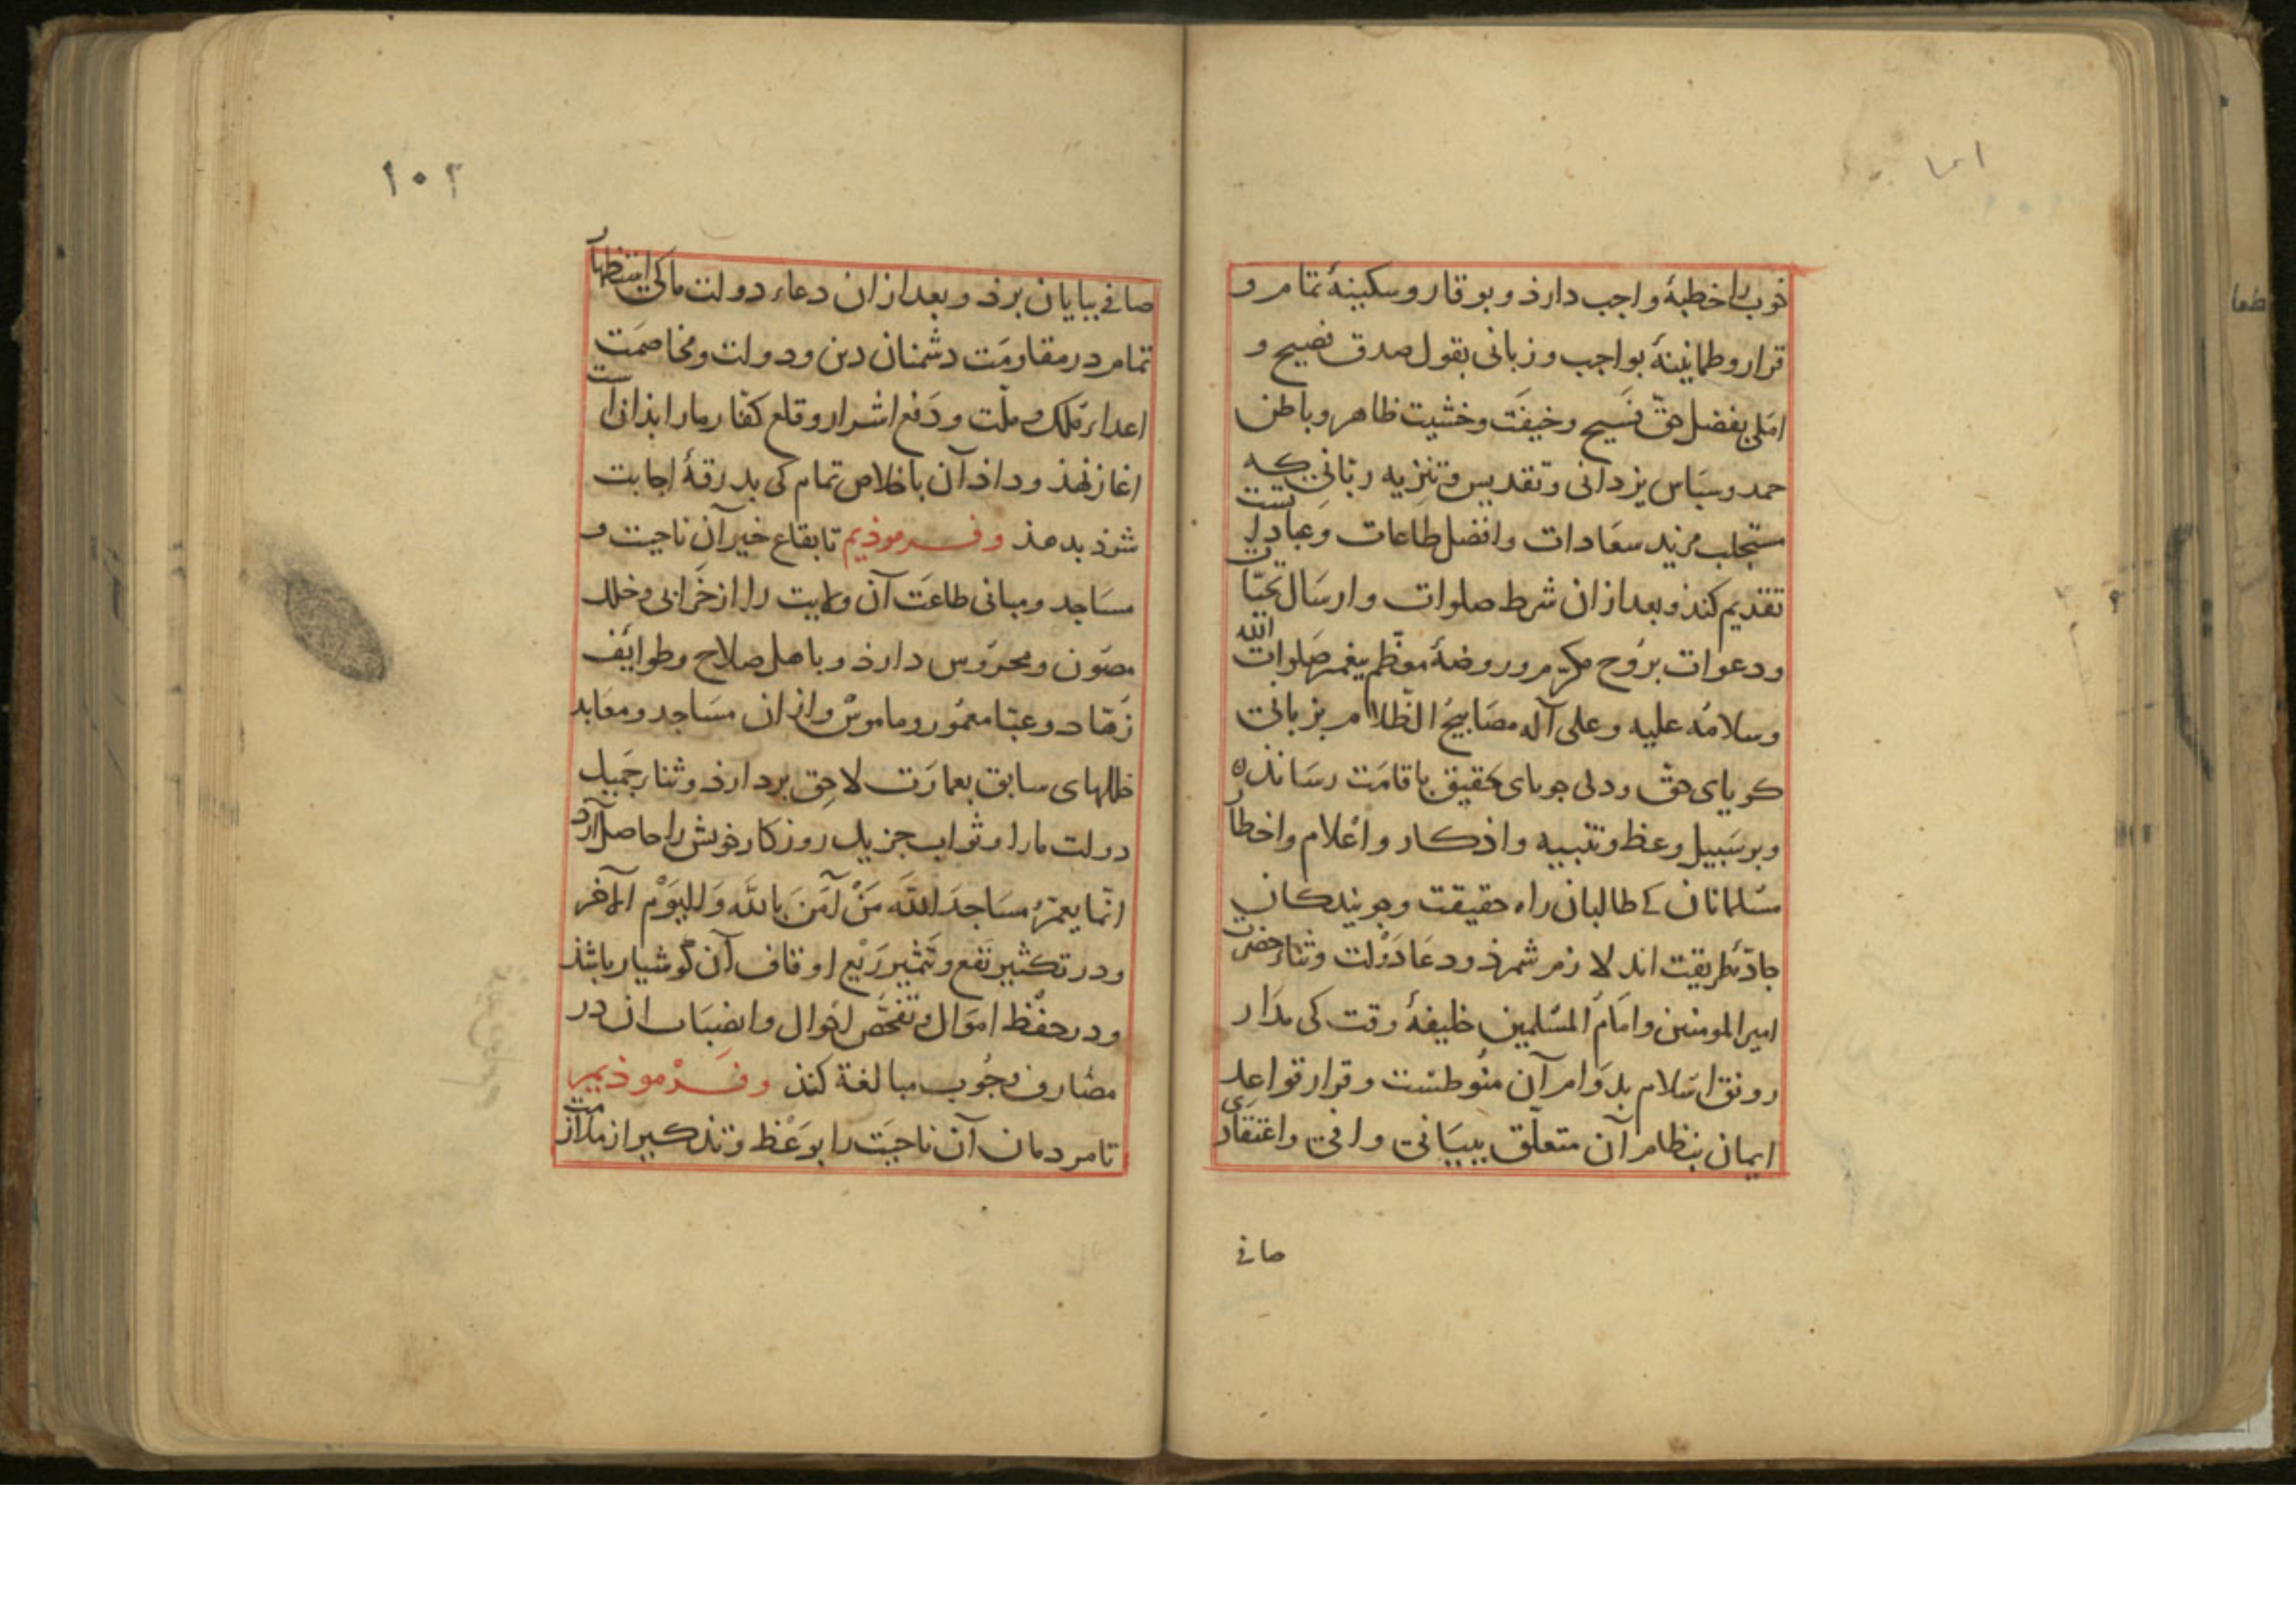 خوب را خطبهٔ واجب دارذ و بوقار و سکینهٔ تمام و
قرار و طمانینهٔ بواجب و زبانی بقول صدق فصیح و
املی بفضل حق فسیح و خیفَت و خشیت ظاهر و باطن
حمد و سپاس یزدانی و تقدیس و تنزیه ربانی که
مستجلب مزید سعادات و افضل طاعات و عباداتست
تقدیم کنذ و بعد از ان شرط صلوات و ارسال تحیّات
و دعوات بر رُوح مکرّم و روضهٔ معظّم پیغمبر صَلوات الله
وسلامُه علیه و علی آله مصَابیح الظّلام بزبانی
کویای حق و دلی جویای تحقیق باقامَت رسَانذه
و بر سَبیل وعظ و تنبیه و اذکار و اعلام و اخطار
مسلمانان کے طالبان راه حقیقت و جویندکان
جادّهٔ طریقت اند لازم شمرذ و دعَا دَوْلت و ثناء حضرت
امیر المومنین و امَام المسلمین خلیفهٔ وقت کی مدَار
رونق اسَلام بدوَام آن منُوطست و قرار قواعِد
ایمان بنظام آن متعلّق ببیَانی وافی و اعتقادی
صافے
۱۰۲
صافے بپایان برذ و بعد از ان دعاء دولت ما کی استظهار
تمام در مقاومَت دشمنان دین و دولت و مخاصمَت
اعداء مُلک و ملّت و دَفع اشرار و قلع کفّار ما را بذانست
اغاز نهذ و داذ آن باخلاص تمام کی بدرقهٔ اجابت
شوذ بدهذ و فرموذیم تا بقاع خیر آن ناحیت و
مسَاجد و مبانی طاعَت آن ولایت را از خَرابی و خلل
مصَون و محروَس دارذ و باهل صلاح و طوایف
زهّاد و عبّاد معمُور و ماموس و از ان مسَاجد و معَابد
خللهای سابق بعمارَت لاحِق بردارذ و ثناء جَمیل
دولت ما را و ثواب جزیل روزکار خویش را حاصل آرد
انّما یعمرُ مسَاجدَ اللهَ مَنْ آمَنَ بالله وَالیَوْم الآخر
و در تکثیر نَفع و تَثمیر رَیْع اوقاف آن کوشیار باشذ
و در حفْظ اموَال و تفحّص احَوال و انصَباب ان در
مصَارف وجُوب مبالغة کنذ و فَرْموذیم
تا مردمان آن ناحیَت را بوَعْظ و تذکیر از ملازمت